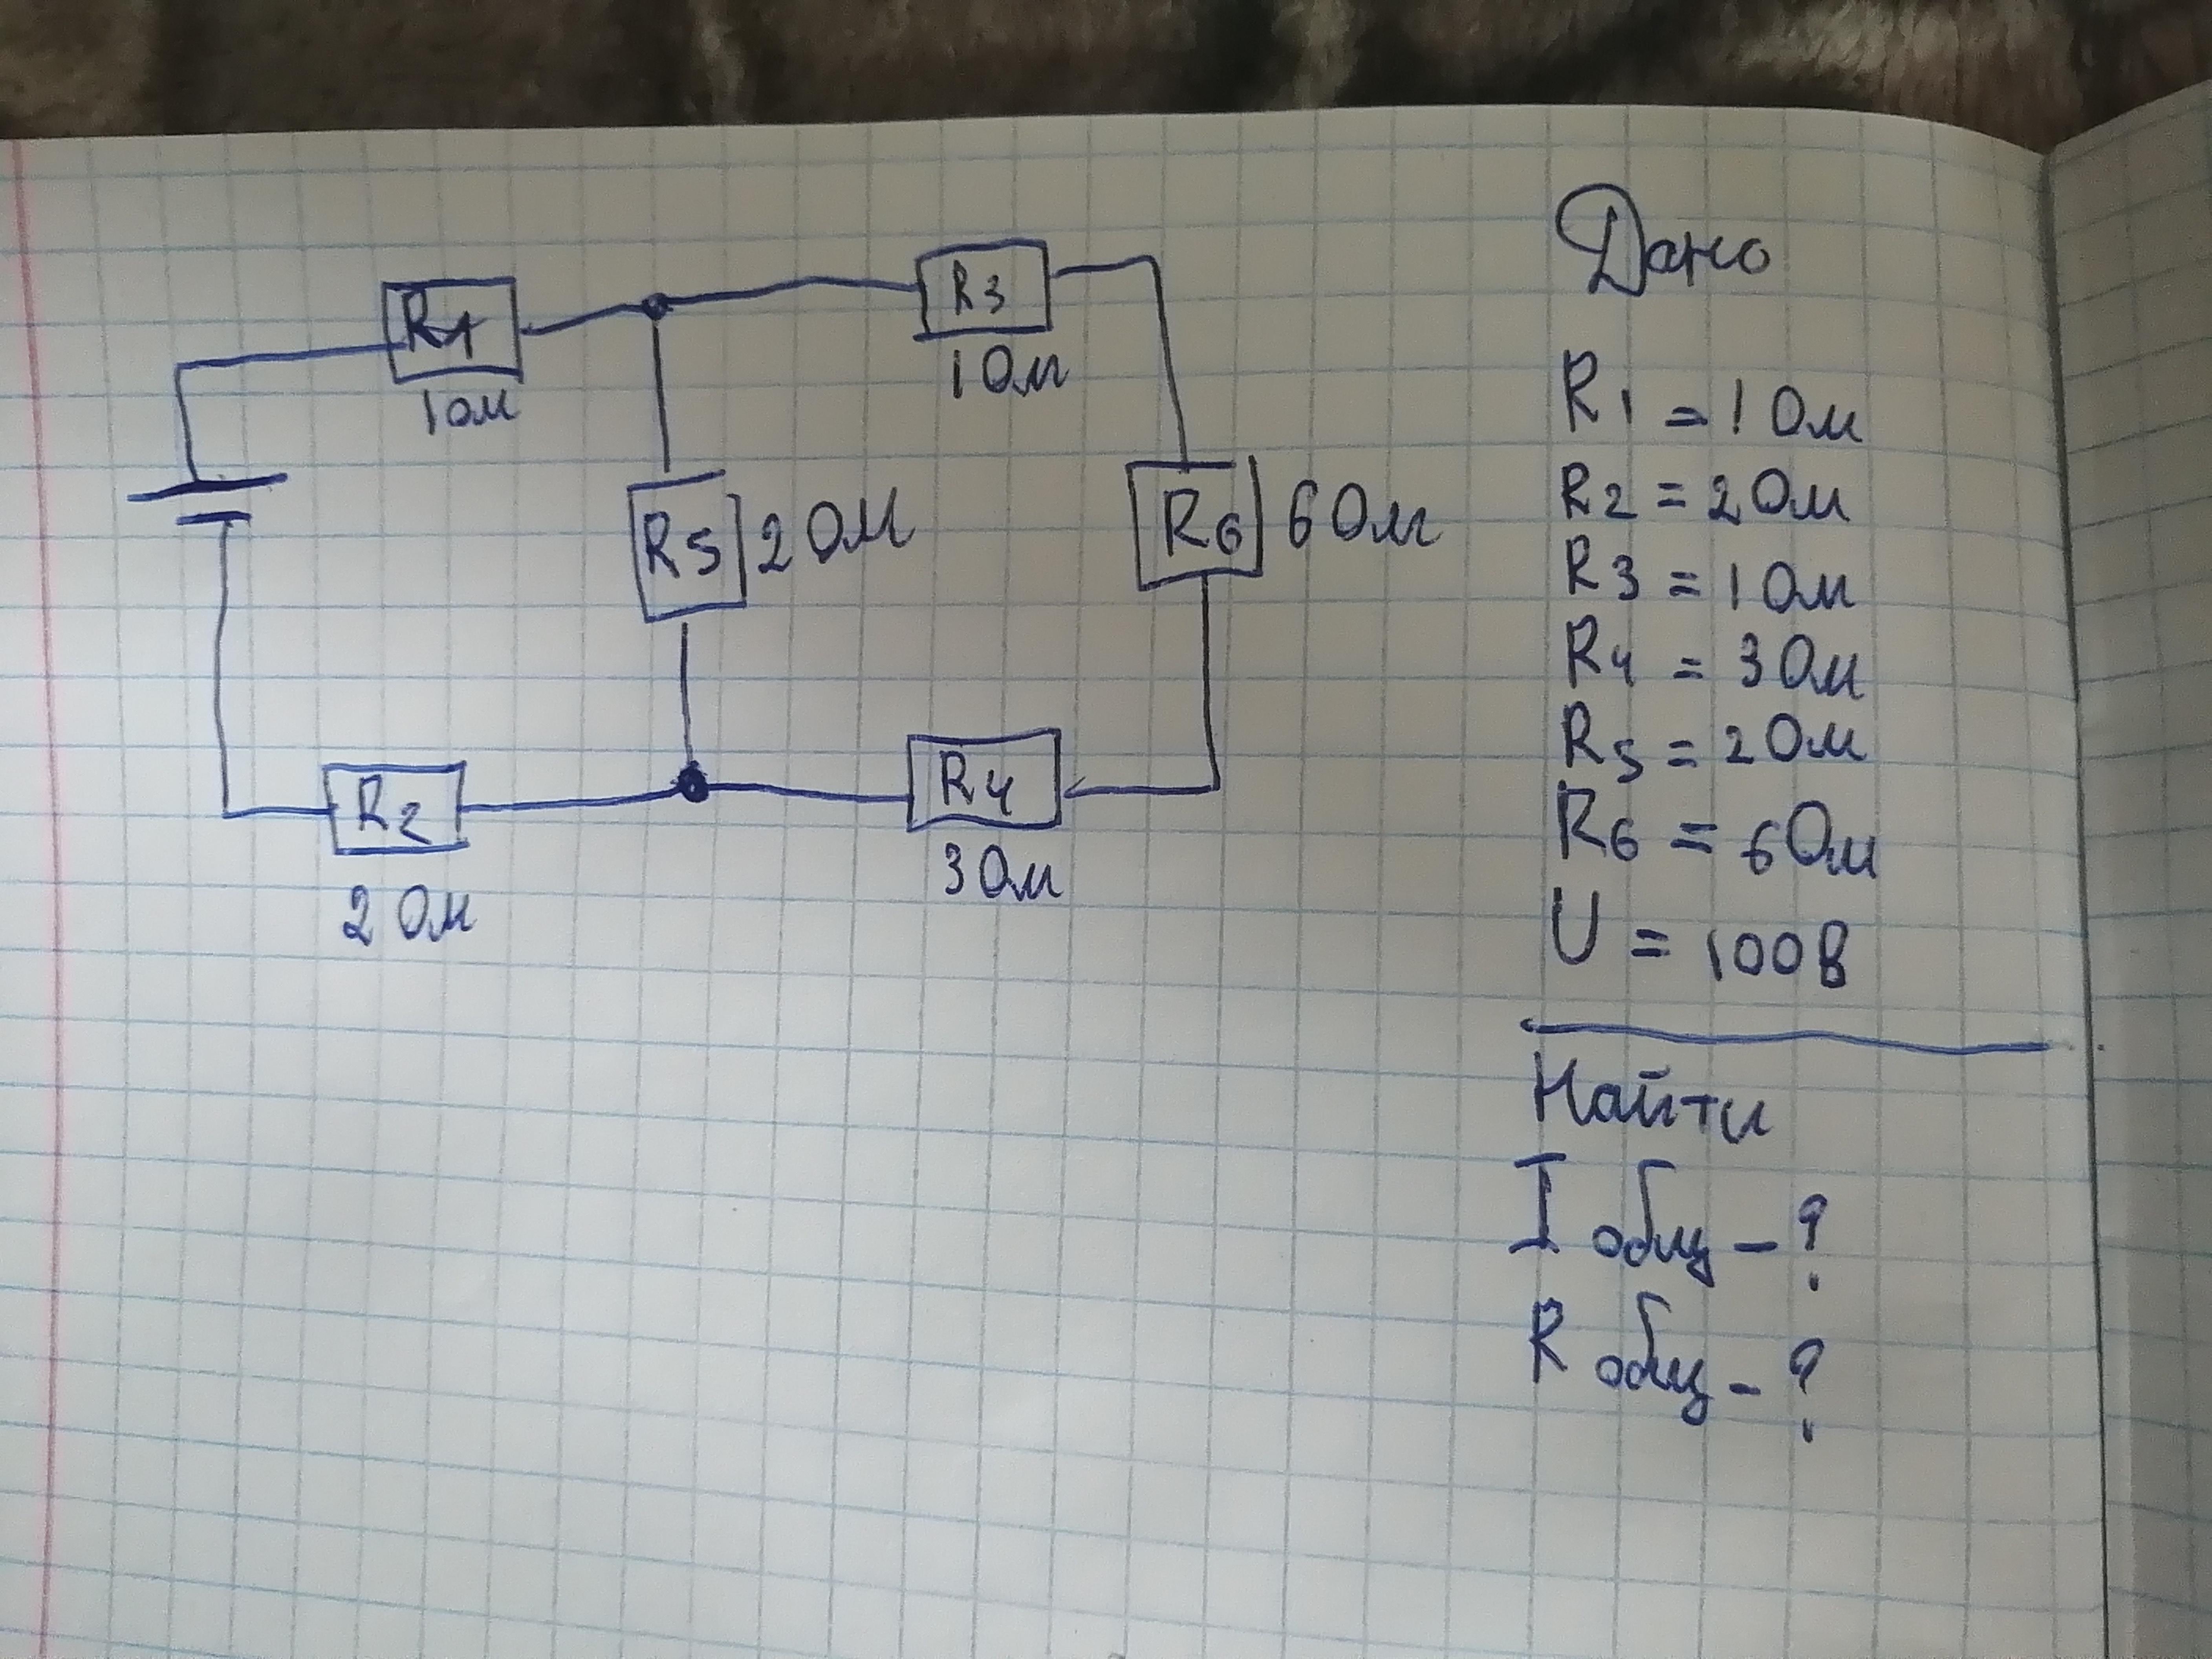 R1
1 Ом
R3
1 Ом
R5
2 Ом
R6
6 Ом
R2
2 Ом
R4
3 Ом
Дано
R1 = 1 Ом
R2 = 2 Ом
R3 = 1 Ом
R4 = 3 Ом
R5 = 2 Ом
R6 = 6 Ом
U = 100 В
Найти
I общ - ?
R общ - ?